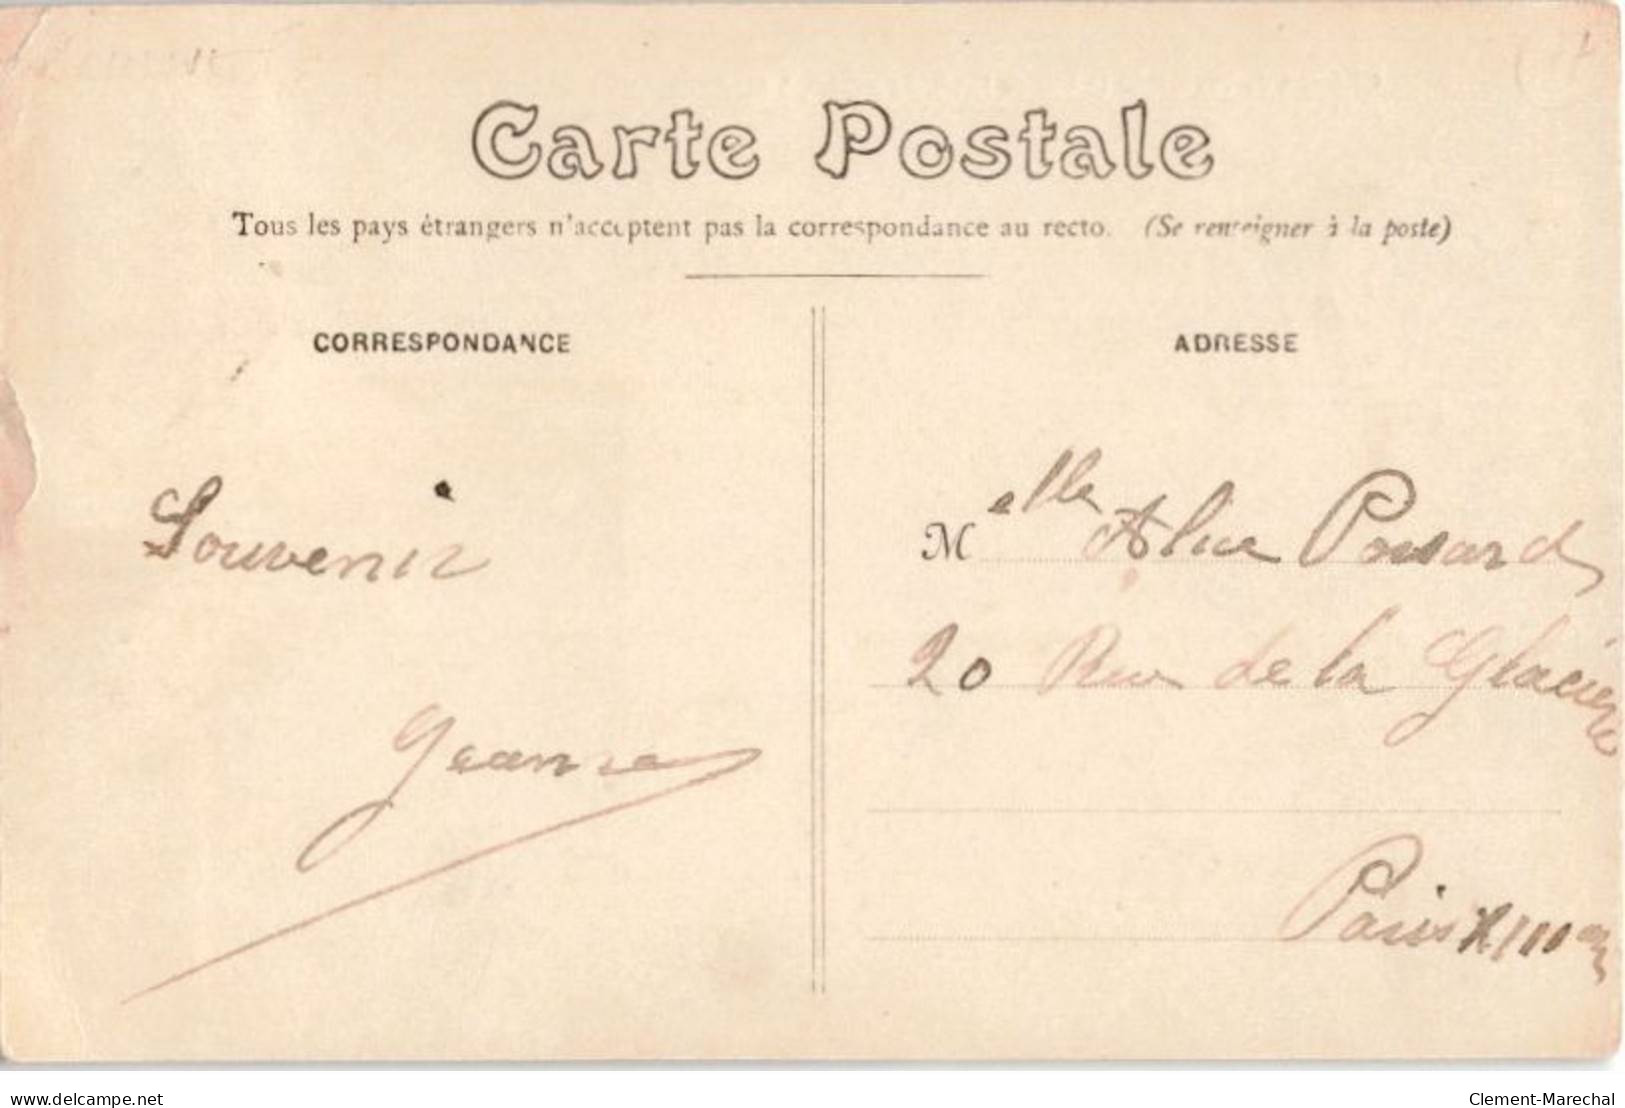 Carte Postale
Tous les pays étrangers n'acceptent pas la correspondance au recto. (Se renseigner à la poste)
CORRESPONDANCE
ADRESSE
Souvenir
Jeanne
Melle Alice
20 Rue de la Glacière
Paris XIII
delcampe.net
Clement-Marechal